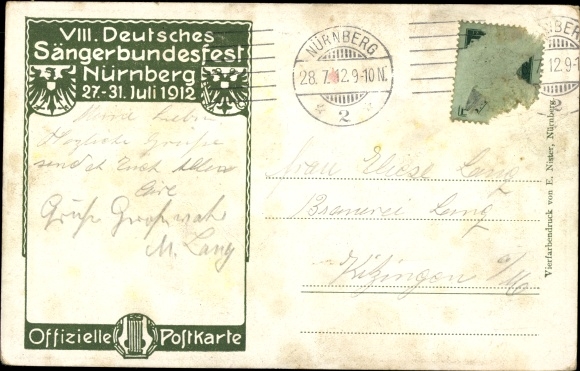 VIII. Deutsches
Sängerbundesfest
Nürnberg
27.-31. Juli 1912
Herzliche Grüße
sendet Euch Allen
M. Lang
Offizielle Postkarte
NÜRNBERG
28. 7. 12. 9-10 N.
2
NBERG
7. 12. 9-1
Frau Eliese Lang
Brauerei Lang
Kitzingen a/M
Vierfarbendruck von E. Nister, Nürnberg.